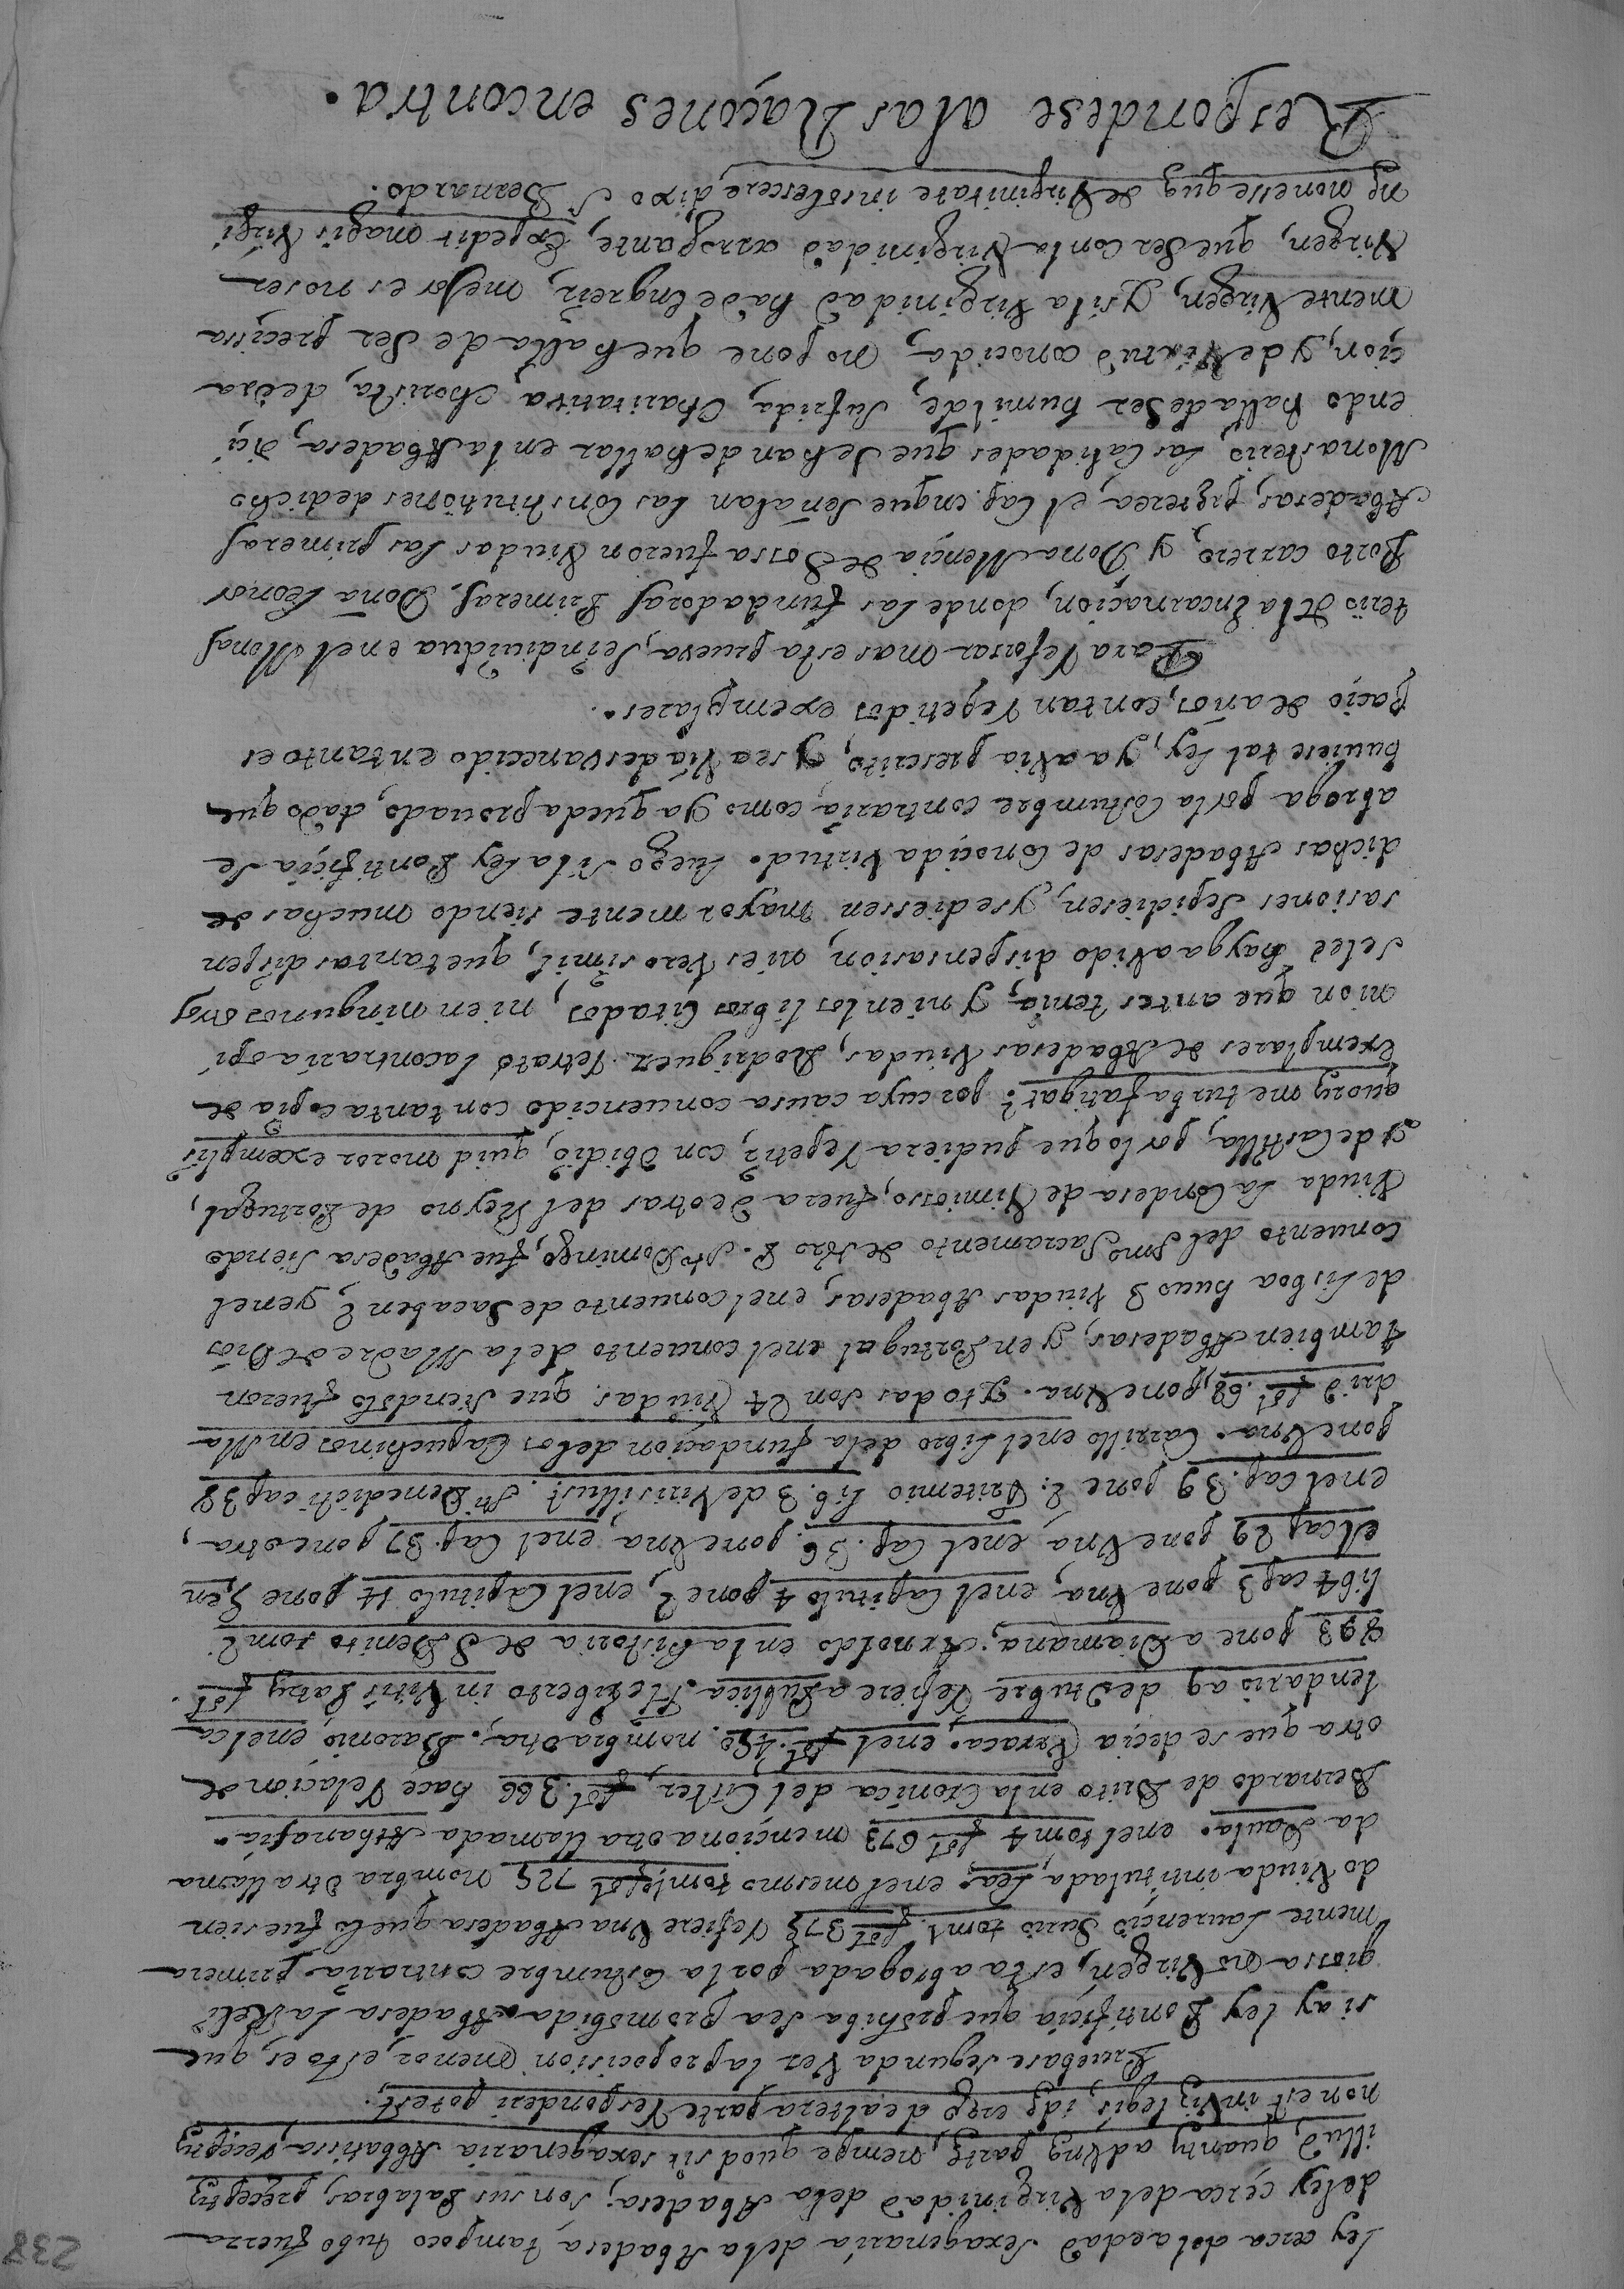 238
Ley acerca dela edad sexagenaria dela Abadesa, tampoco tubo fuerza
de ley çerca dela Virginidad dela Abadesa, son sus Palabras, præceptū
illud, quantū ad vnā partē, nempe quod sit sexagenaria Abbatissa receptū
non est in vī legis, idē ergo de altera parte responderi potest.
Pruebase segunda vez la proposision menor, esto es, que
si ay ley Pontifiçia que prohiba sea promobida a Abadesa la Reli
giossa no Virgen, esta abrogada por la costumbre contraria. primera
mente Laurençio Surio tom 1 fol 373 refiere vna Abadesa que lo fue sien
do Viuda intitulada, Lea; enel mesmo tom fol 725 nombra otra llama
da Paula. enel tom 4 fol 673 mençiona otra llamada Athanasia.
Bernardo de Brito en la Cronica del Cister, fol 366 haçe relaçion de
otra que se deçia Vrraca. enel fol. 490. nombra otra. Baronio, enel ca
lendario a 9 de otubre refiere a Publica. Heriberto in Vitis Patrū fol.
293 pone a Diamana; Arnoldo en la historia de S Benito tom 2
lib 4 cap 3 pone vna, enel Capitulo 4 pone 2, enel Capitulo 14 pone 3, en
el cap 29 pone vna, enel Cap. 36. pone vna, enel Cap. 37 pone otra,
enel Cap. 39 pone 2. Tritemio Lib. 3 de Viris illust. Sti Benedicti cap 38
pone vna. Carrillo enel Libro dela fundaçion delos Capuchinos en Ma
drid fol. 68, pone vna. y todas son 24 Viudas, que siendolo fueron
tambien Abadesas, y en Portugal enel conuento dela Madre de Dios
de Lisboa huuo 3 viudas Abadesas, enel conuento de Sacaben 2, y enel
Conuento del Smo Sacramento de Nro P. Sto Domingo, fue Abadesa siendo
Viuda la Condesa de Vimiosso, fuera de otras del Reyno de Portugal,
y de Castilla, por lo que pudiera repetir con Obidio, quid moror exemplis
quorū me turba fatigat? por cuya causa conuencido con tanta copia de
exemplares de Abadesas Viudas, Rodriguez retrato la contraria opi
nion que antes tenia, y ni en los libros Citados, ni en ningunos otros
se lee haygaavido dispensasion, ni es Verosimil, que tantas dispen
sasiones se pidiesen, y se diessen mayormente siendo muchas de
dichas Abadesas de Conocida Virtud. luego si la ley Pontifiçia se
abroga por la costumbre contraria, como ya queda prouado, dado que
huuiese tal ley, ya avia prescrito, y se avia desvaneçido en tanto es
paçio de años, con tan repetidos exemplares.
Para reforsar mas esta prueva, se indiuidua enel Monas
terio de la Encarnaçion, donde las fundadoras Primeras, Doña Leonor
Porto carrero, y Doña Mençia de Sossa fueron Viudas las primeras
Abadesas, el Cap. en que señalan las Constituçiones de dicho
Monasterio, las Calidades que se han de hallar en la Abadesa, diçi
endo ha lla de Ser humilde, Sufrida, Charitativa, chorista, de ora
çion, y de Virtud conocida, no pone que halla de Ser preçissa
mente Virgen, y si la Virginidad ha de Engreir, mejor es no ser
Virgen, que Ser con la Virginidad arrogante, Expedit magis Virgi
nē non esse quā de Virginitate insolescere, dixo S Bernardo.
Respondese alas Raçones encontra.